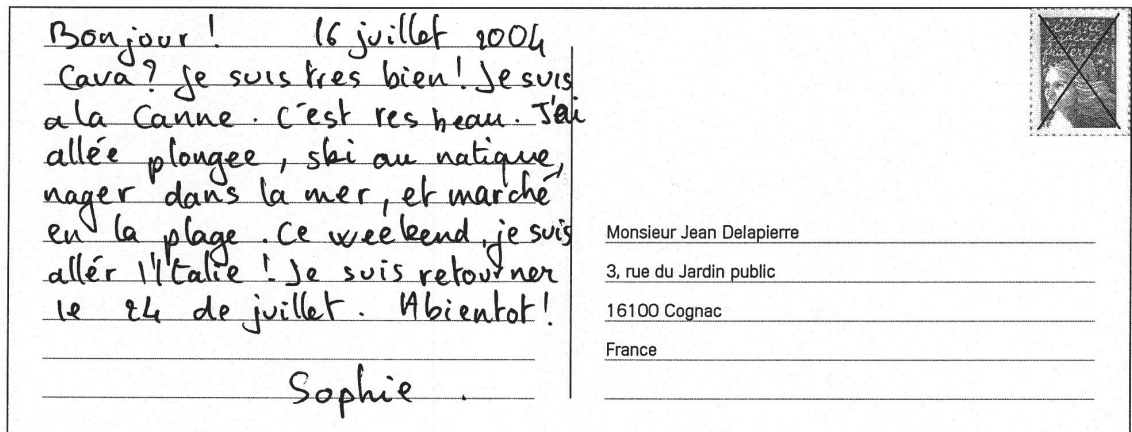 Bonjour! 16 juillet 2004
Cava? Je suis tres bien! Je suis
a la Canne. c'est res beau. J'ai
allée plongee, ski au natique,
nager dans la mer, et marché
en la plage. Ce weekend, je suis
allér l'Italie! Je suis retourner
le 24 de juillet. Abientot!
Sophie.
Monsieur Jean Delapierre
3, rue du Jardin public
16100 Cognac
France